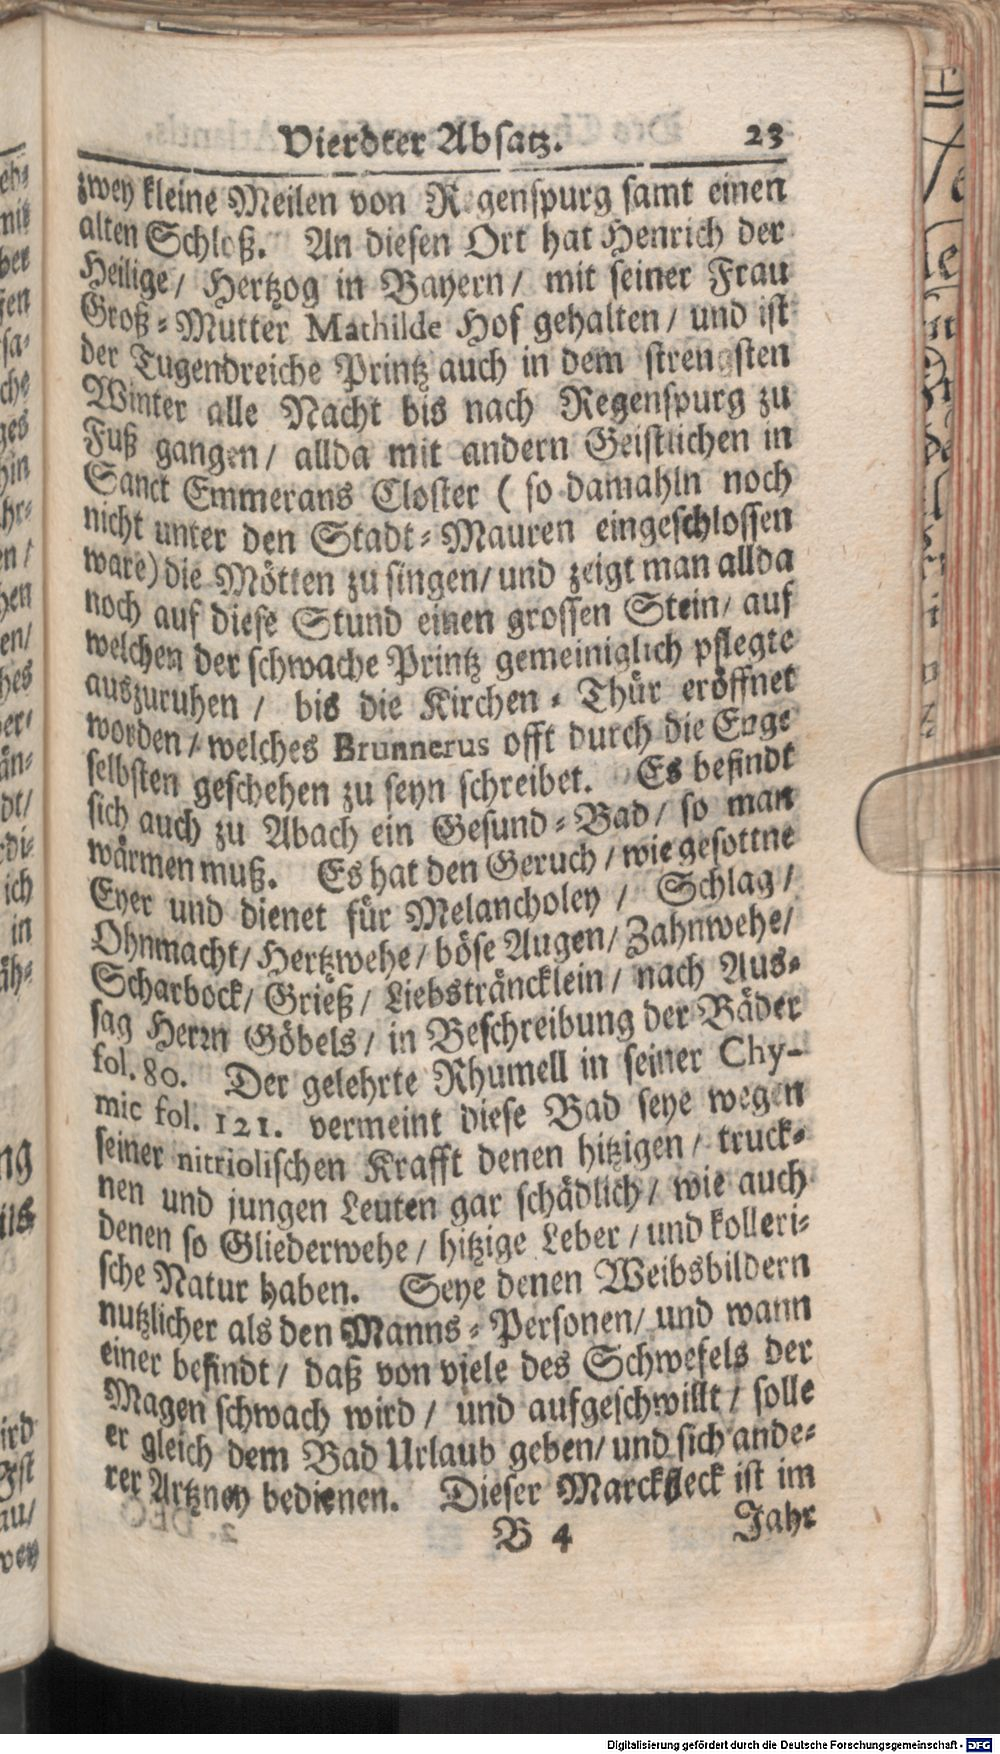 Vierdter Absatz. 23
zwey kleine Meilen von Regenspurg samt einen
alten Schloß. An diesen Ort hat Henrich der
Heilige/ Hertzog in Bayern/ mit seiner Frau
Groß-Mutter Mathilde Hof gehalten/ und ist
der Tugendreiche Printz auch in dem strengsten
Winter alle Nacht bis nach Regenspurg zu
Fuß gangen/ allda mit andern Geistlichen in
Sanct Emmerans Closter ( so damahln noch
nicht unter den Stadt-Mauren eingeschlossen
ware) die Mötten zu singen/ und zeigt man allda
noch auf diese Stund einen grossen Stein/ auf
welchen der schwache Printz gemeiniglich pflegte
auszuruhen / bis die Kirchen-Thür eröffnet
worden/ welches Brunnerus offt durch die Enge
selbsten geschehen zu seyn schreibet. Es befindt
sich auch zu Abach ein Gesund-Bad/ so man
wärmen muß. Es hat den Geruch / wie gesottne
Eyer und dienet für Melancholey / Schlag/
Ohnmacht/ Hertzwehe/ böse Augen/ Zahnwehe/
Scharbock/ Grieß/ Liebsträncklein/ nach Aus-
sag Herrn Göbels/ in Beschreibung der Bäder
fol. 80. Der gelehrte Rhumell in seiner Chy-
mic fol. 121. vermeint diese Bad seye wegen
seiner nitriolischen Krafft denen hitzigen/ truck-
nen und jungen Leuten gar schädlich/ wie auch
denen so Gliederwehe/ hitzige Leber/ und kolleri-
sche Natur haben. Seye denen Weibsbildern
nutzlicher als den Manns-Personen/ und wann
einer befindt/ daß von viele des Schwefels der
Magen schwach wird/ und aufgeschwillt/ solle
er gleich dem Bad Urlaub geben/ und sich ande-
rer Artzney bedienen. Dieser Marckfleck ist im
B 4 Jahr
Digitalisierung gefördert durch die Deutsche Forschungsgemeinschaft - DFG